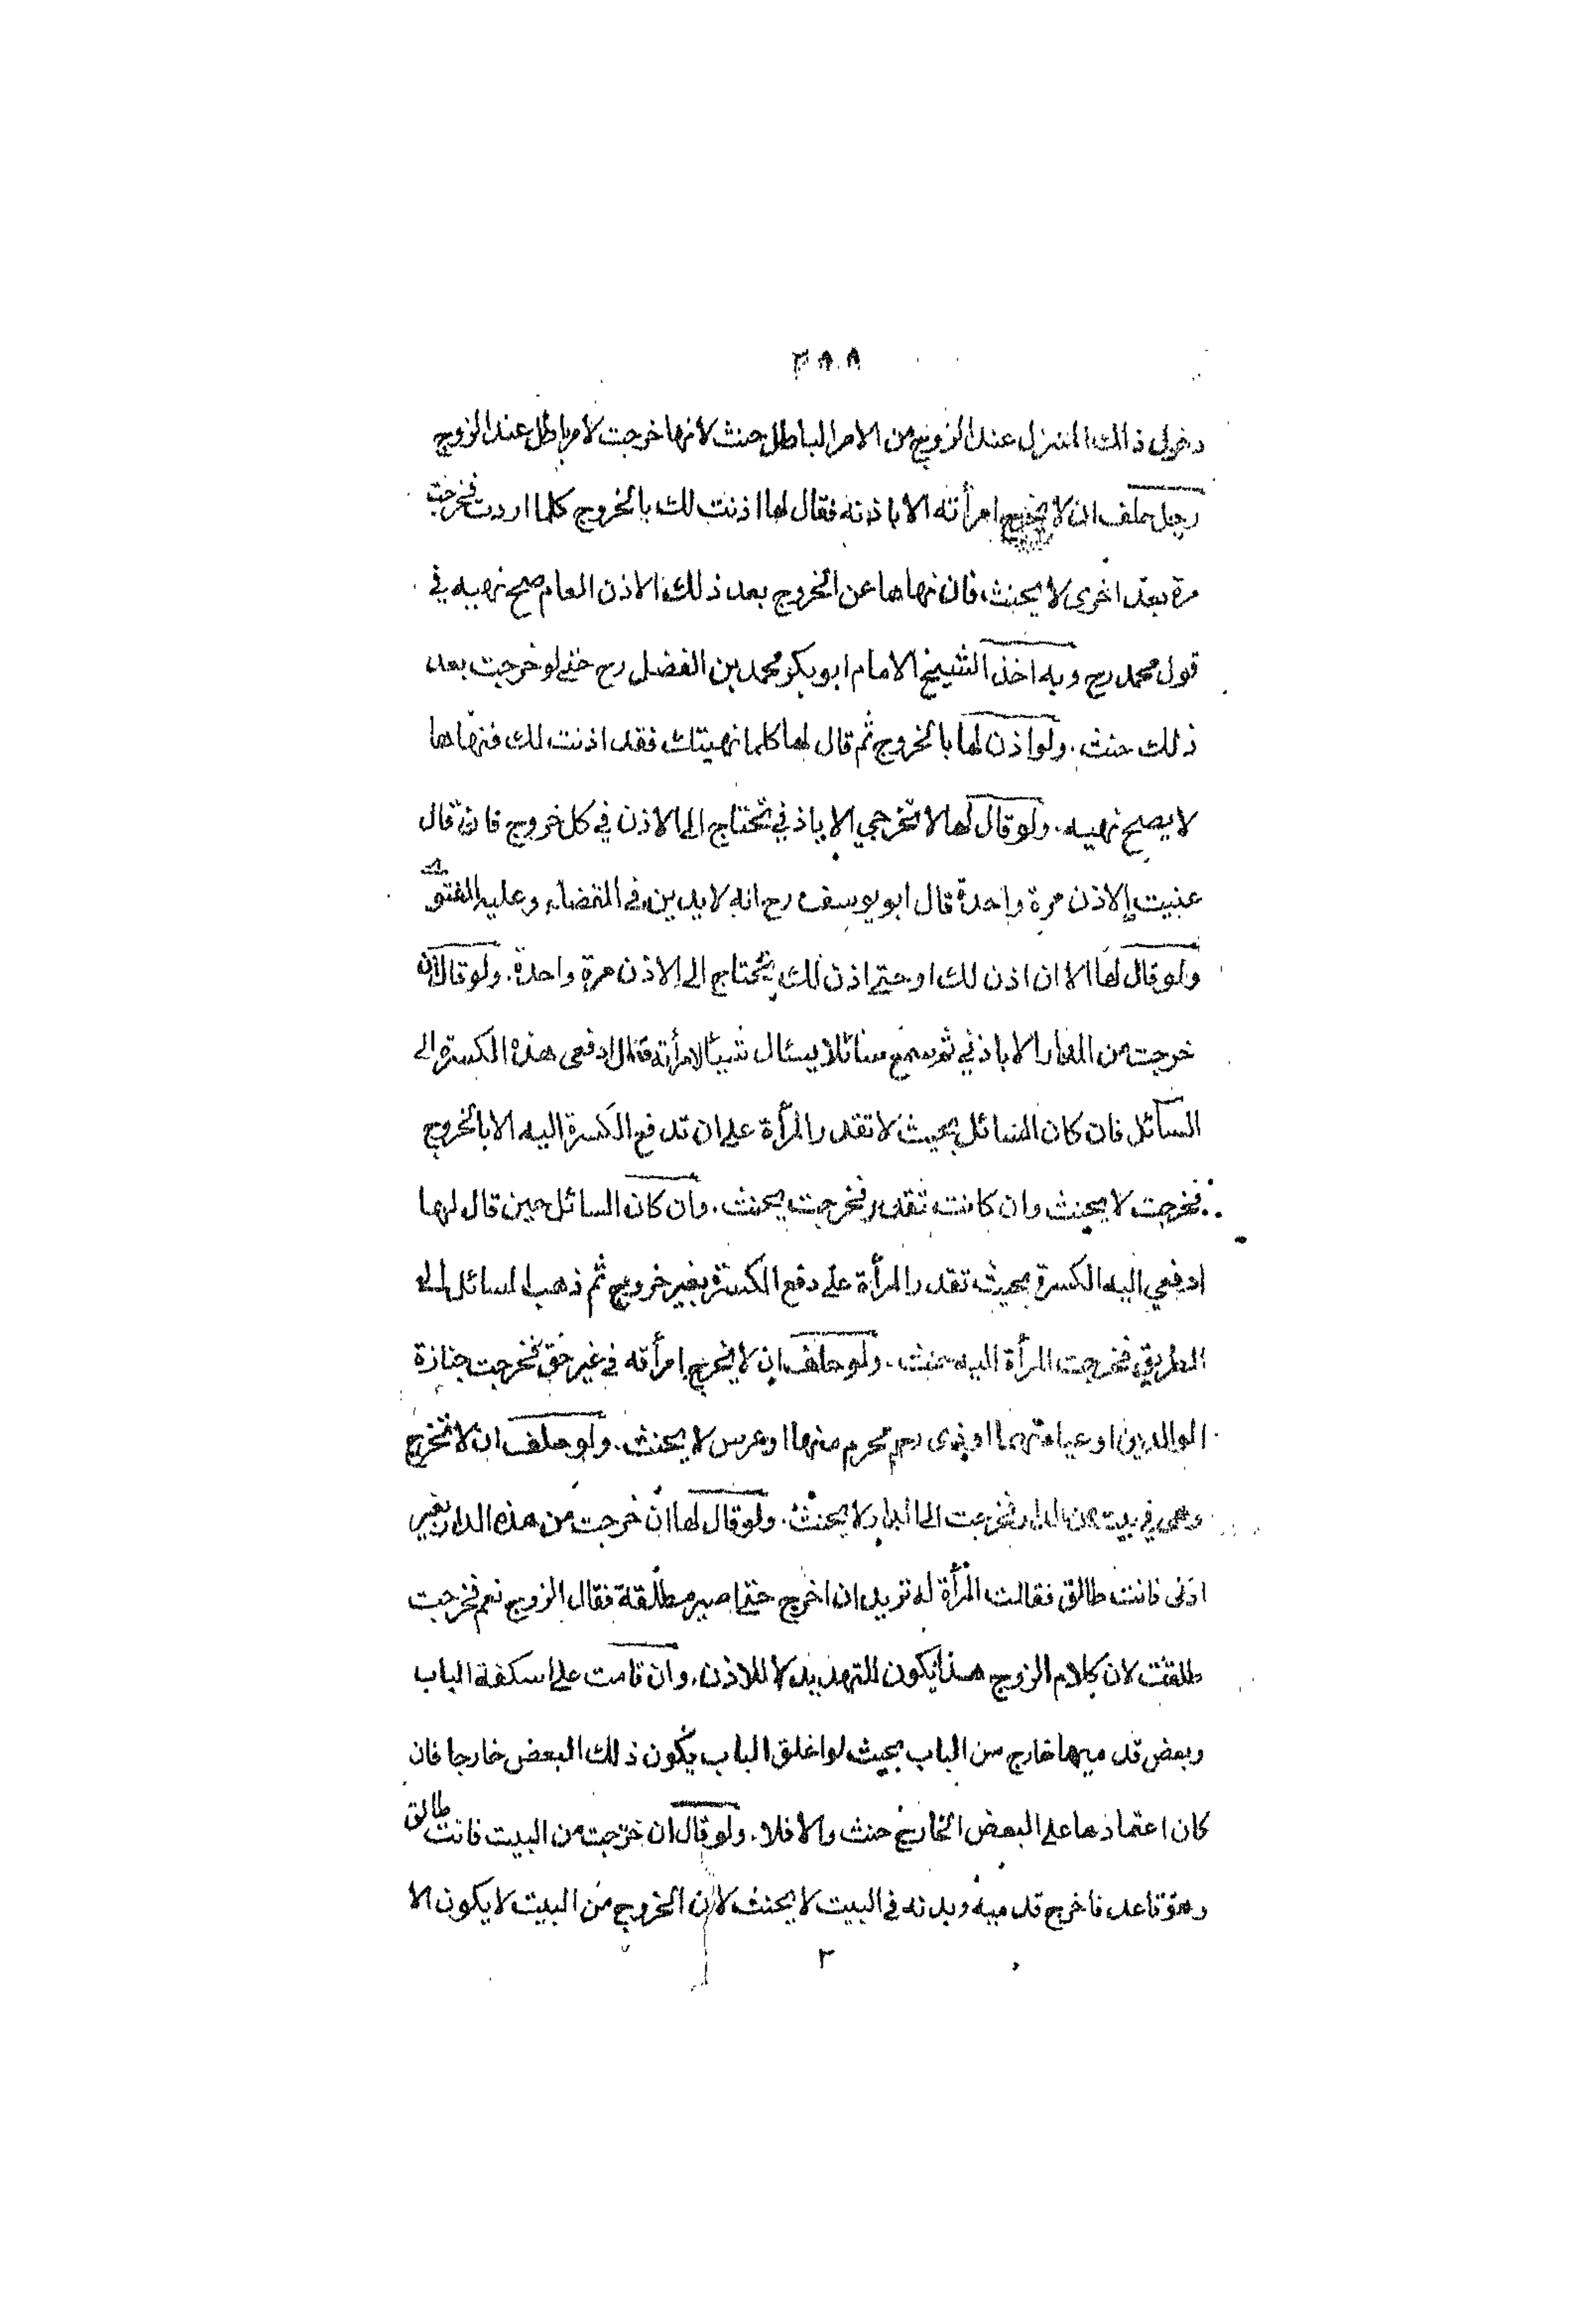 ٣٨٨
دخول ذلك المنزل عند الزوج من الامر الباطل حنث لانها خرجت لامر باطل عند الزوج
رجل حلف ان لا يخرج امرأته الا باذنه فقال لها اذنت لك بالخروج كلما اردت فخرجت
مرة بعد اخرى لا يحنث فان نهاها عن الخروج بعد ذلك الاذن العام صح نهيه في
قول محمد رح وبه اخذ الشيخ الامام ابو بكر محمد بن الفضل رح حتى لو خرجت بعد
ذلك حنث . ولو اذن لها بالخروج ثم قال لها كلما نهيتك فقد اذنت لك فنهاها
لا يصح نهيه . ولو قال لها لا تخرجي الا باذني تحتاج الى الاذن في كل خروج فان قال
عنيت الاذن مرة واحدة قال ابو يوسف رح انه لا يدين في القضاء وعليه الفتوى
ولو قال لها الا ان اذن لك او حتى اذن لك يحتاج الى الاذن مرة واحدة . ولو قال ان
خرجت من الدار الا باذني ثم سمع سائلا يسئال شيئا لامرأته فقال ادفعى هذه الكسرة الى
السائل فان كان السائل بحيث لا تقدر المرأة على ان تدفع الكسرة اليه الا بالخروج
فخرجت لا يحنث وان كانت تقدر فخرجت يحنث . وان كان السائل حين قال لها
ادفعي اليه الكسرة بحيث تقدر المرأة على دفع الكسرة بغير خروج ثم ذهب السائل الى
الطريق فخرجت المرأة اليه حنث . ولو حلف ان لا يخرج امرأته في غير حق فخرجت جنازة
الوالدين او عيادتهما او لذى رحم محرم منها او عرس لا يحنث . ولو حلف ان لا تخرج
وهى في بيت من الدار فخرجت الى الدار لا يحنث . ولو قال لها ان خرجت من هذه الدار بغير
اذنى فانت طالق فقالت المرأة له تريد ان اخرج حتى اصير مطلقة فقال الزوج نعم فخرجت
طلقت لان كلام الزوج هذا يكون للتهديد لا للاذن . وان قامت على اسكفة الباب
وبعض قدميها خارج من الباب بحيث لو اغلق الباب يكون ذلك البعض خارجا فان
كان اعتمادها على البعض الخارج حنث والا فلا . ولو قال ان خرجت من البيت فانت طالق
وهو قاعد فاخرج قدميه وبدنه في البيت لا يحنث لان الخروج من البيت لا يكون الا
٢